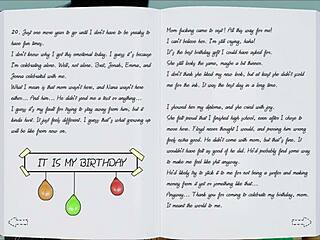 20. Just one more year to go until I don't have to be sneaky to
have fun. Jenny.
I don't know why I got this emotional today. I guess it's because
I'm celebrating alone. Well, not alone. Best, Jonah, Emma, and
Jenna celebrated with me.
What I mean is that mom wasn't here, and Nana wasn't here
either... And him... He didn't send me a text or anything...
I guess it's my fault for trying to play away from him, but it
kinda hurt. It just feels different. I guess that's what growing up
will be like from now on.
IT IS MY BIRTHDAY
Mom fucking came to visit! All this way for me!
I can't believe him. I'm still crying, haha!
It's the best birthday gift I could have asked for.
She still looks the same, maybe a bit thinner.
I don't think she liked my new look, but at least she didn't yell
me for the ink. It was the best day in a long time.
I showed her my diploma, and she cried with joy.
She felt proud that I finished high school, even after I chose to
move here. Floyd never thought I would, and proving him wrong
feels extra good. He didn't come with mom, but that's fine. It
wouldn't have felt as good if he did. He'd probably find some way
to make me feel like shit anyway.
He'd likely try to stick it to me for not being a prefer and making
money from it yet or something like that...
Anyway... Thank you for coming to celebrate my birthday, mom.
It meant the world to me.